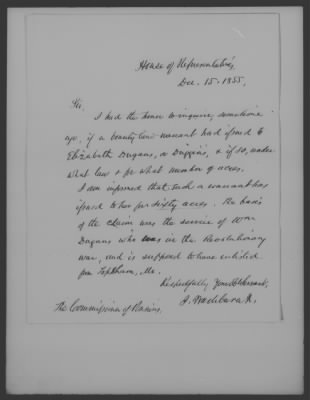 House of Representatives,
Dec. 15. 1855,
Sir,
I had the honor to inquire, sometime
ago, if a bounty land warrant had issued to
Elizabeth Dugans, or Duggins, & if so, under
what law & for what number of acres.
I am informed that such a warrant has
issued to her for sixty acres. The basis
of the claim was the service of Wm
Dugans who was in the Revolutionary
war, and is supposed to have enlisted
from Topsham, Me.
Respectfully Your Ob Servant,
I. Washburn Jr.
The Commissioner of Pensions.